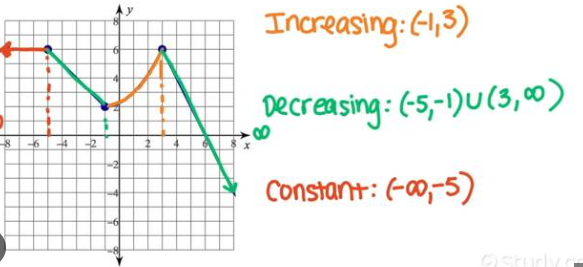 y
8
6
4
2
-8 -6 -4 -2 2 4 6 8 x ∞
-2
-4
-6
-8
Increasing: (-1,3)
Decreasing: (-5,-1)∪(3,∞)
Constant: (-∞,-5)